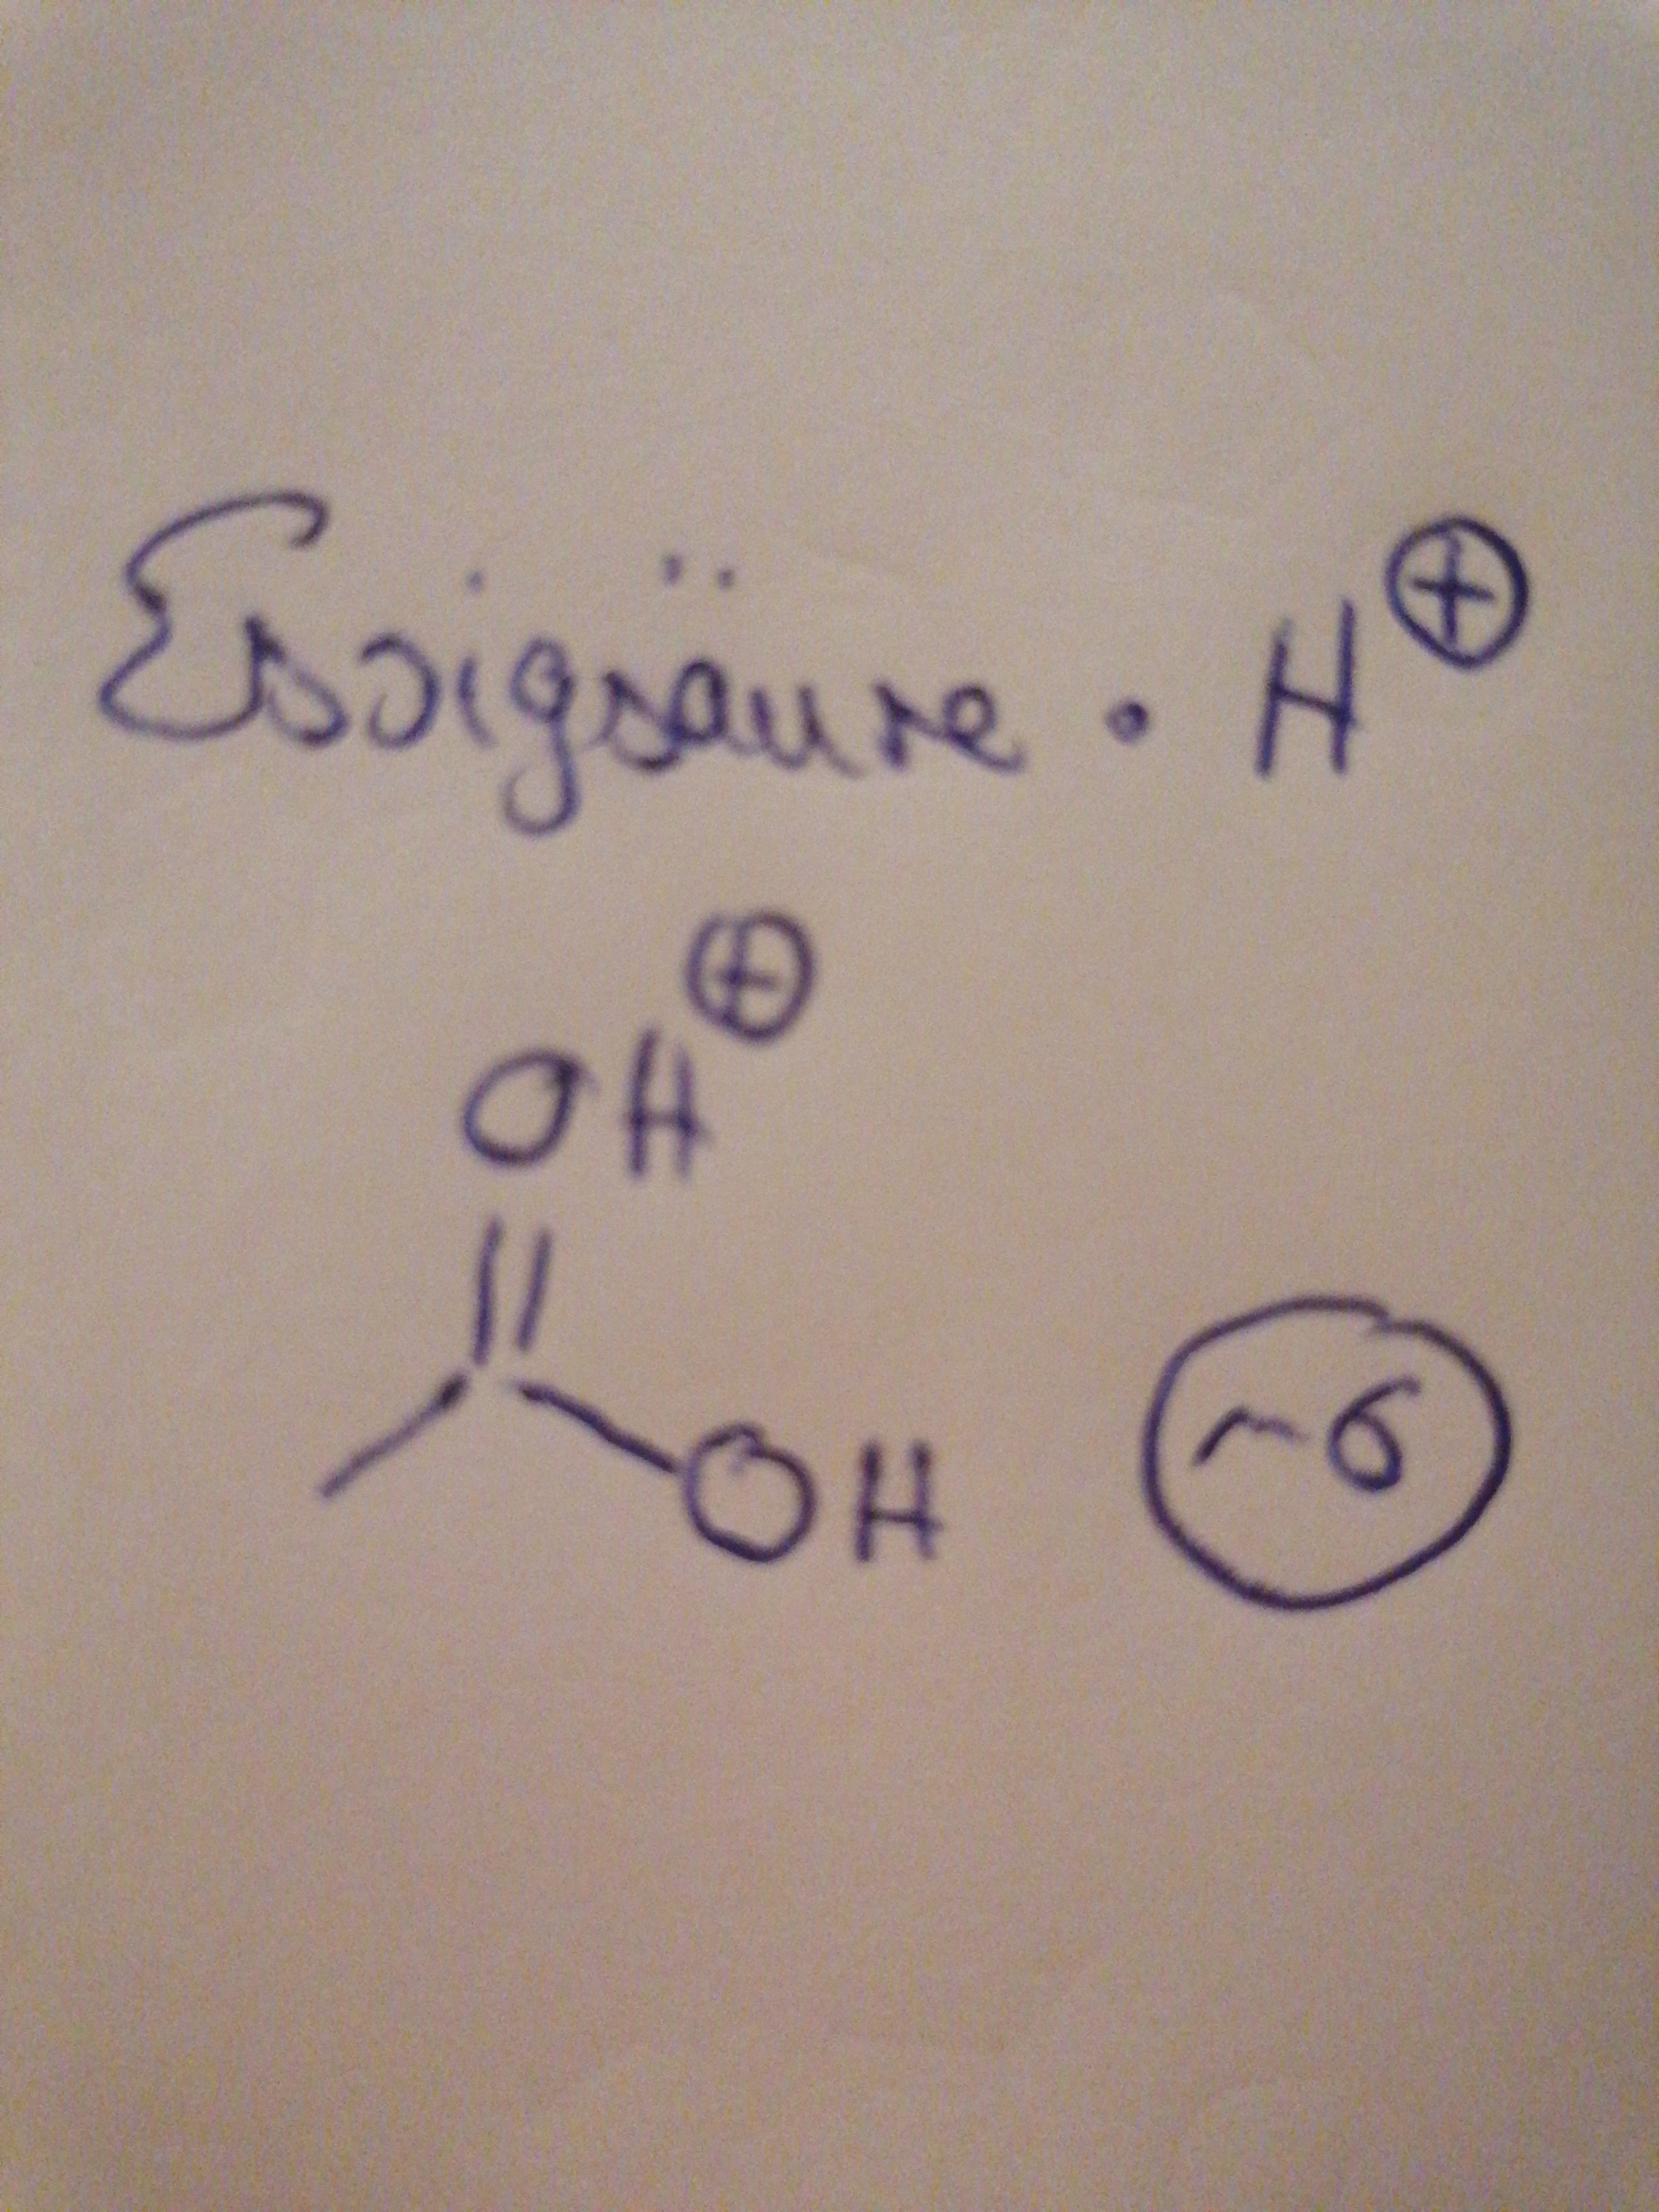 Essigsäure · H⊕
OH⊕
OH
~6